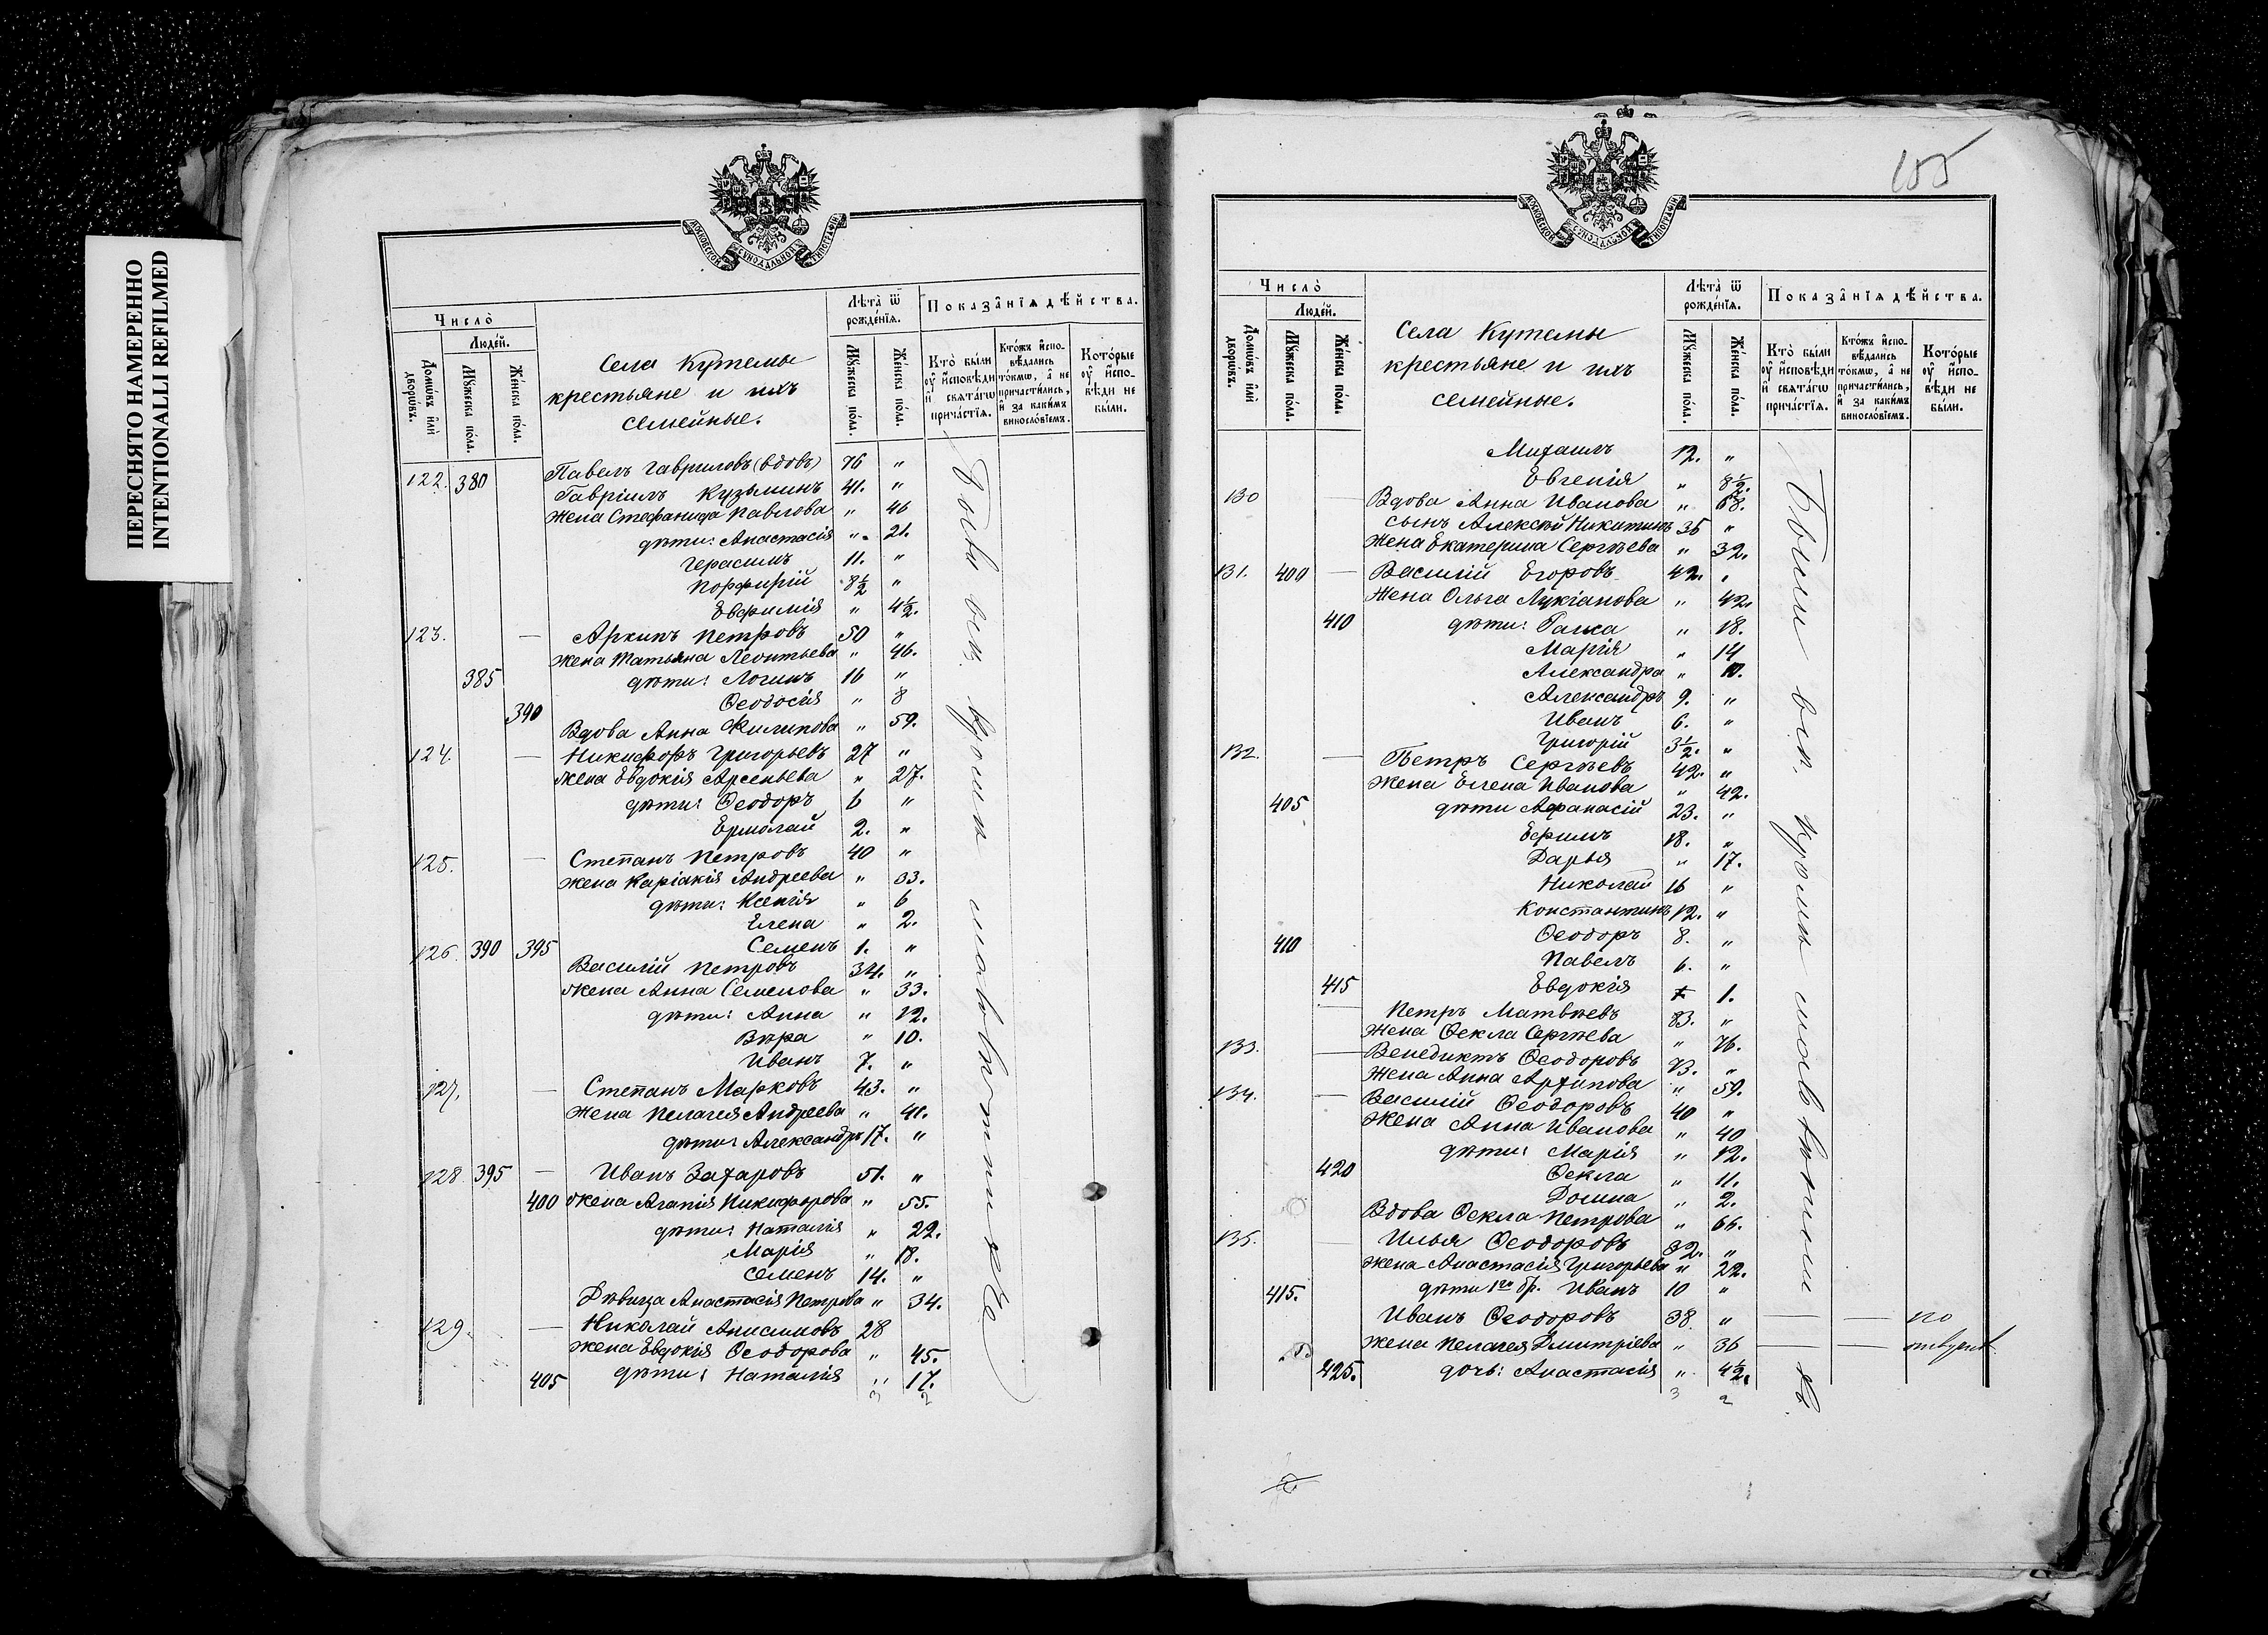 ПЕРЕСНЯТО НАМЕРЕННО
INTENTIONALLI REFILMED
МОСКОВСКОЙ СѴНОДАЛЬНОЙ ТИПОГРАФІИ
Число̀
Люде́й.
Домѡ́въ и҆лѝ дворѡ́въ.
Мꙋ́жеска по́ла.
Же́нска по́ла.
Села Кутемы
крестьяне и ихъ
семейные.
Лѣта̀ ѿ рожде́нїѧ.
Мꙋ́жеска по́ла.
Же́нска по́ла.
Показа̑нїѧ дѣ́йства.
Кто̀ бы́ли ᲂу҆ и҆сповѣ́ди и҆ свѧта́гѡ прича́стїѧ.
Кто́жъ и҆спо­вѣ́дались то́кмѡ, а҆ не причасти́лись, и҆ за каки́мъ виносло́вїемъ.
Кото́рые ᲂу҆ и҆спо­вѣ́ди не бы́ли.
122. 380 Павелъ Гавриловъ (вдовъ) 76 "
Гавріилъ Кузьминъ 41. "
жена Стефанида Павлова " 46
дѣти: Анастасія " 21.
Герасимъ 11. "
Порфирій 8½ "
Евфимія " 4½.
123. — Архипъ Петровъ 50 "
жена Татьяна Леонтьева " 46.
385 дѣти: Логинъ 16 "
Ѳеодосія " 8
390 Вдова Анна Филипова " 59.
124. — Никифоръ Григорьевъ 27 "
жена Евдокія Арсеньева " 27.
дѣти: Ѳеодоръ 6 "
Ермолай 2. "
125. — Степанъ Петровъ 40 "
жена Каріакія Андреева " 33.
дѣти: Ксенія " 6
Елена " 2.
Семенъ 1. "
126. 390 395 Василій Петровъ 34. "
жена Анна Семенова " 33.
дѣти: Анна " 12.
Вѣра " 10.
Иванъ 7. "
127. — Степанъ Марковъ 43. "
жена Пелагея Андреева " 41.
дѣти: Александръ 17. "
128. 395 — Иванъ Захаровъ 51. "
400 жена Агапія Никифорова " 55.
дѣти: Наталія " 22.
Марія " 18.
Семенъ 14. "
Дѣвица Анастасія Петрова " 34.
129. — Николай Анисимовъ 28
жена Евдокія Ѳеодорова " 45.
405 дѣти: Наталія " 17.
3 2
155
МОСКОВСКОЙ СѴНОДАЛЬНОЙ ТИПОГРАФІИ
Число̀
Люде́й.
Домѡ́въ и҆лѝ дворѡ́въ.
Мꙋ́жеска по́ла.
Же́нска по́ла.
Села Кутемы
крестьяне и ихъ
семейные.
Лѣта̀ ѿ рожде́нїѧ.
Мꙋ́жеска по́ла.
Же́нска по́ла.
Показа̑нїѧ дѣ́йства.
Кто̀ бы́ли ᲂу҆ и҆сповѣ́ди и҆ свѧта́гѡ прича́стїѧ.
Кто́жъ и҆спо­вѣ́дались то́кмѡ, а҆ не причасти́лись, и҆ за каки́мъ виносло́вїемъ.
Кото́рые ᲂу҆ и҆спо­вѣ́ди не бы́ли.
Михаилъ 12. "
Евгенія " 8½.
130 — Вдова Анна Иванова " 68.
сынъ Алексѣй Никитинъ 35 "
жена Екатерина Сергѣева " 32.
131. 400 — Василій Егоровъ 42. "
жена Ольга Лукіанова " 42.
410 дѣти: Раиса " 18.
Марія " 14
Александра " 10.
Александръ 9. "
Иванъ 6. "
Григорій 3½. "
132. — Петръ Сергѣевъ 42. "
жена Елена Иванова " 42.
405 дѣти Афанасій 23. "
Ефимъ 18. "
Дарья " 17.
Николай 16 "
Константинъ 12. "
410 Ѳеодоръ 8. "
Павелъ 6. "
415 Евдокія 1.
Петръ Матвѣевъ 83. "
жена Ѳекла Сергѣева " 76.
133. — Венедиктъ Ѳеодоровъ 73. "
жена Анна Архипова " 59.
134. — Василій Ѳеодоровъ 40 "
жена Анна Иванова " 40
дѣти: Марія " 12.
420 Ѳекла " 11.
Домна " 2.
Вдова Ѳекла Петрова " 66.
135. Илья Ѳеодоровъ 32. "
жена Анастасія Григорьева " 22.
415. дѣти 1го бр. Иванъ 10 "
Иванъ Ѳеодоровъ 38. " — — по
жена Пелагея Дмитріева " 36 — — отлуч.
425. дочь: Анастасія " 4½.
3 2